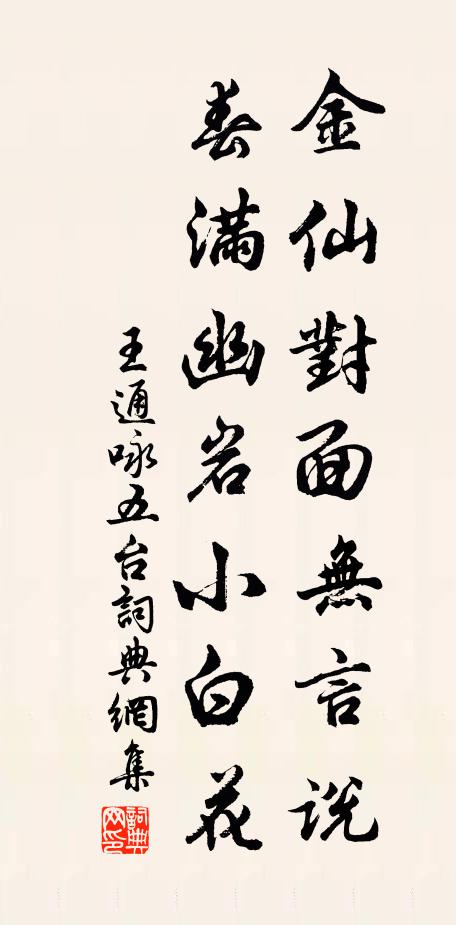 金仙對面無言説
春滿幽岩小白花
王通咏五台詞典網集
詞典网印